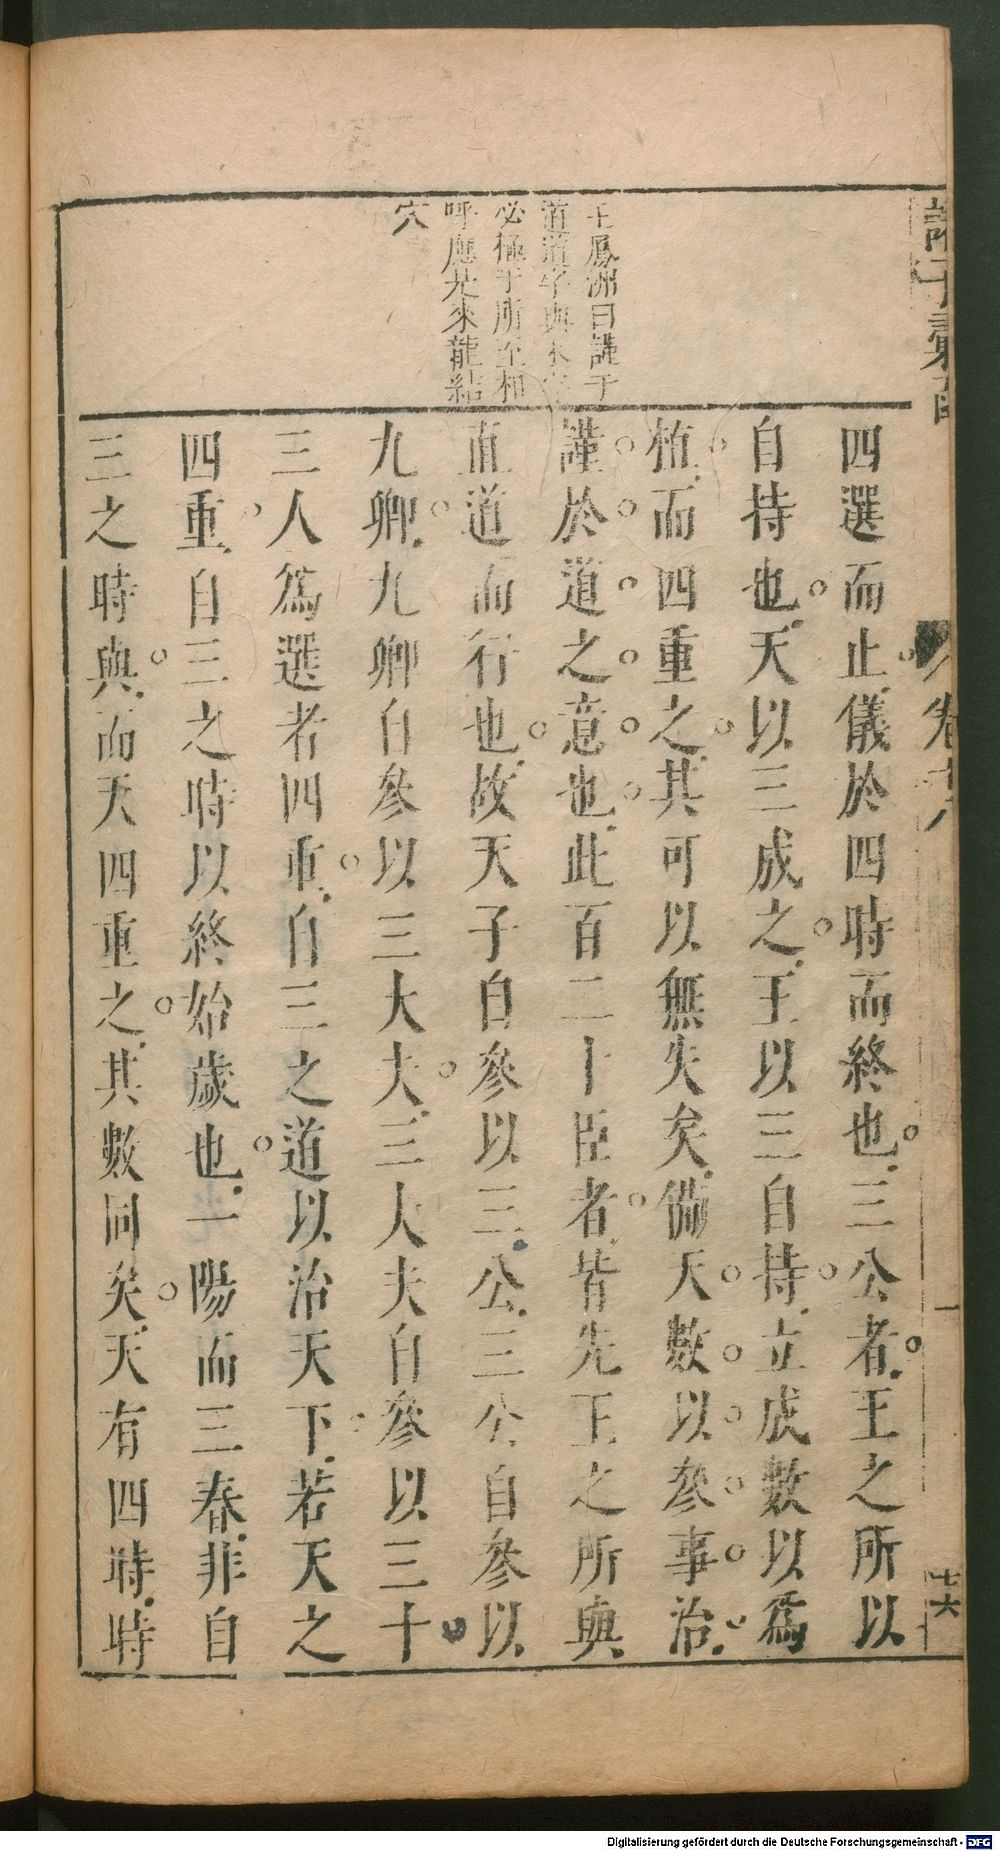 王鳳洲曰謹于
道道字與末
必極于所至相
呼應是來龍結
穴
四選而止儀於四時而終也三公者王之所以
自持也天以三成之王以三自持立成數以爲
植而四重之其可以無失矣備天數以參事治
謹於道之意也此百二十臣者皆先王之所與
直道而行也故天子自參以三公三公自參以
九卿九卿自參以三大夫三大夫自參以三十
三人爲選者四重自三之道以治天下若天之
四重自三之時以終始歲也一陽而三春非自
三之時與而天四重之其數同矣天有四時時
卷十八
十六
Digitalisierung gefördert durch die Deutsche Forschungsgemeinschaft - DFG